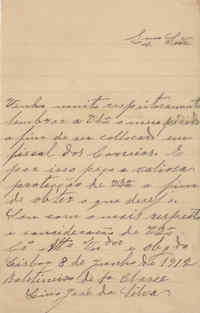 Exmo Snr
Venho muito respeitosamente
lembrar a V Exa o meu pedido
a fim de ser collocado um
fiscal dos Correios. E
por isso peço a valiosa
protecção de V Exa a fim
de obter o que desejo.
Sou com o mais respeito
e consideração de V Exa
Cº Attº Vedor e Obgdo
Lisboa 8 de Junho de 1912
Boletineiro de 1a Classe
José da Silva